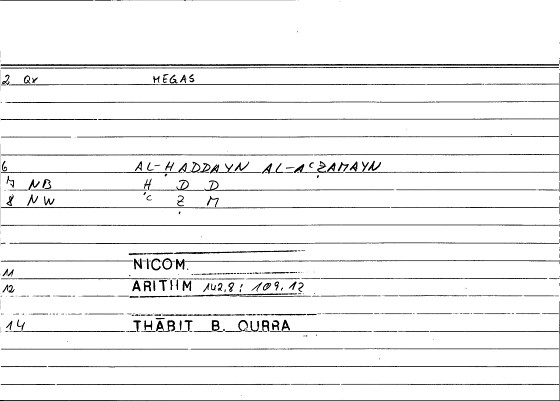 2 Qr MEGAS
6 AL-ḤADDAYN AL-AʿẒAMAYN
7 NB Ḥ D D
8 NW ʿ Ẓ M
11 NICOM.
12 ARITHM 142,8; 109,12
14 THĀBIT B. QURRA